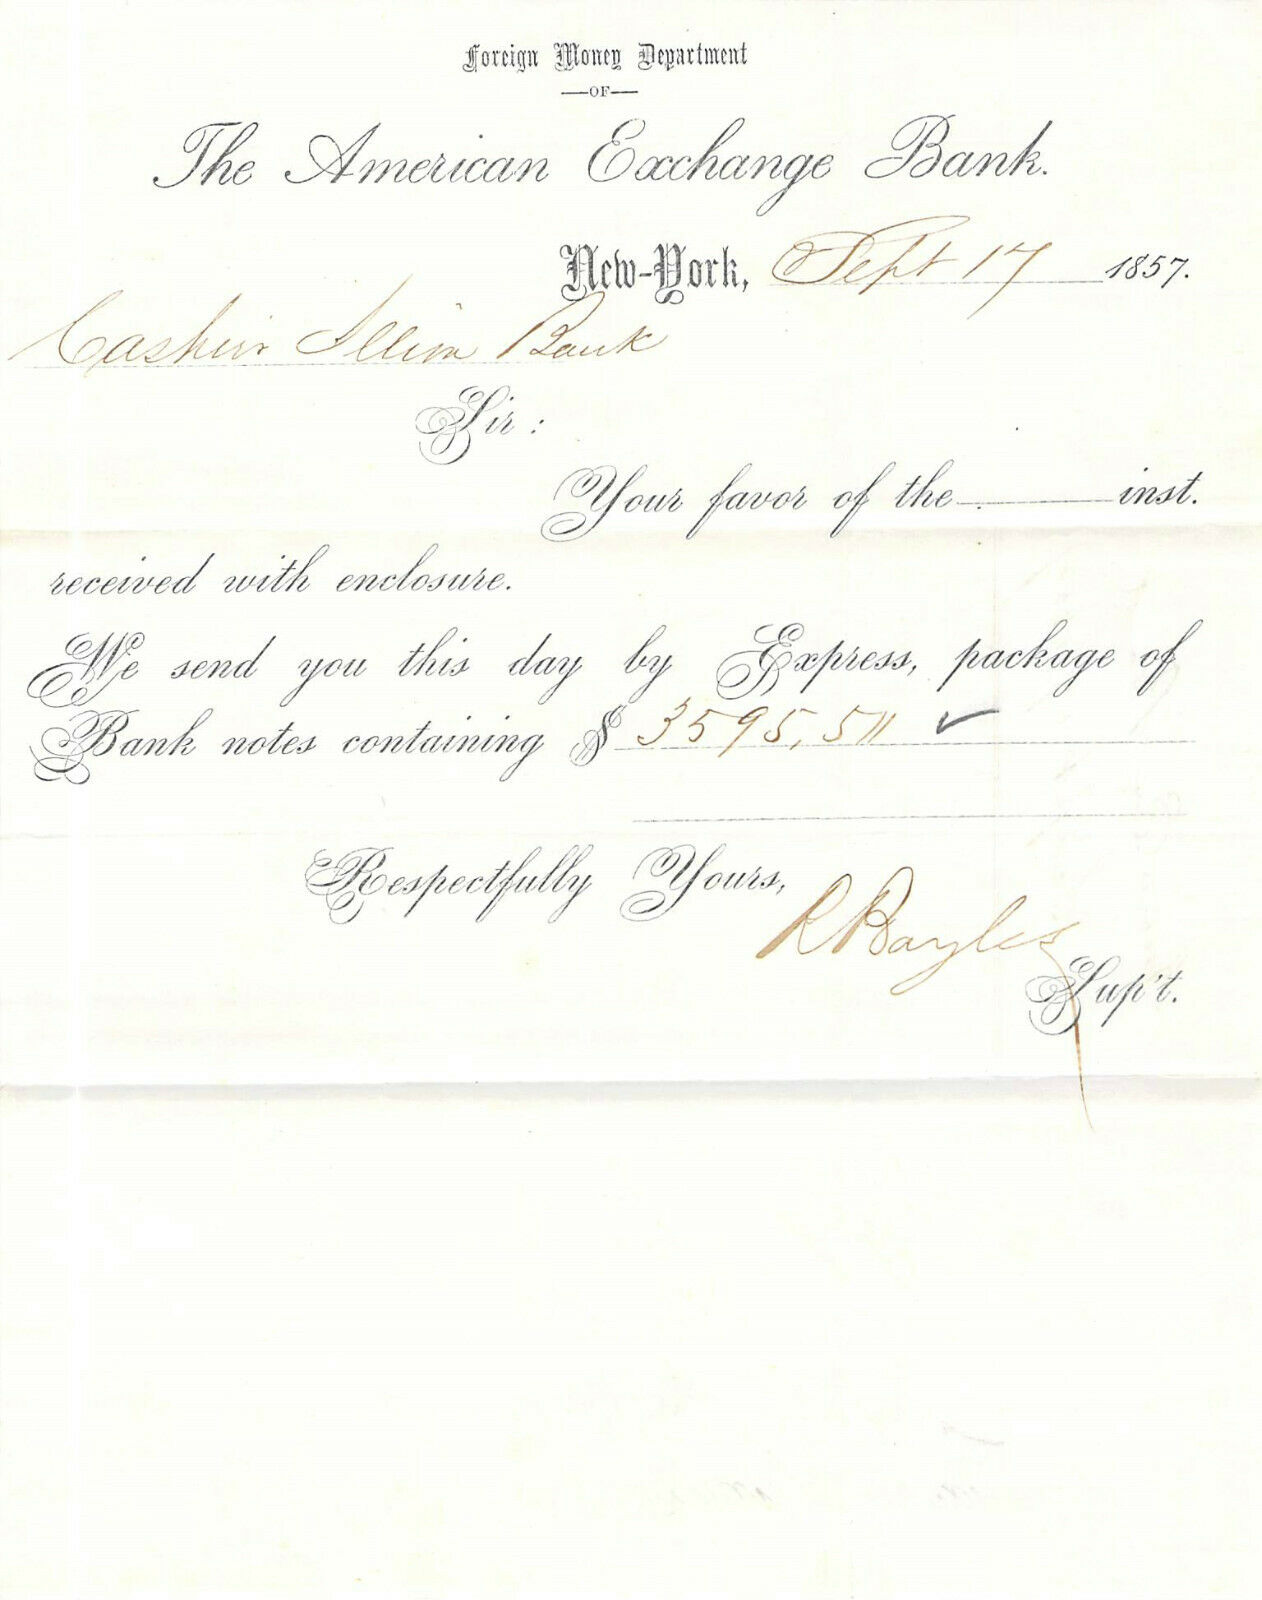 Foreign Money Department
—OF—
The American Exchange Bank.
New-York, Sept 17 1857.
Cashier Ilion Bank
Sir:
Your favor of the inst.
received with enclosure.
We send you this day by Express, package of
Bank notes containing $ 3595,511 ✓
Respectfully Yours,
R Bayles
Sup't.